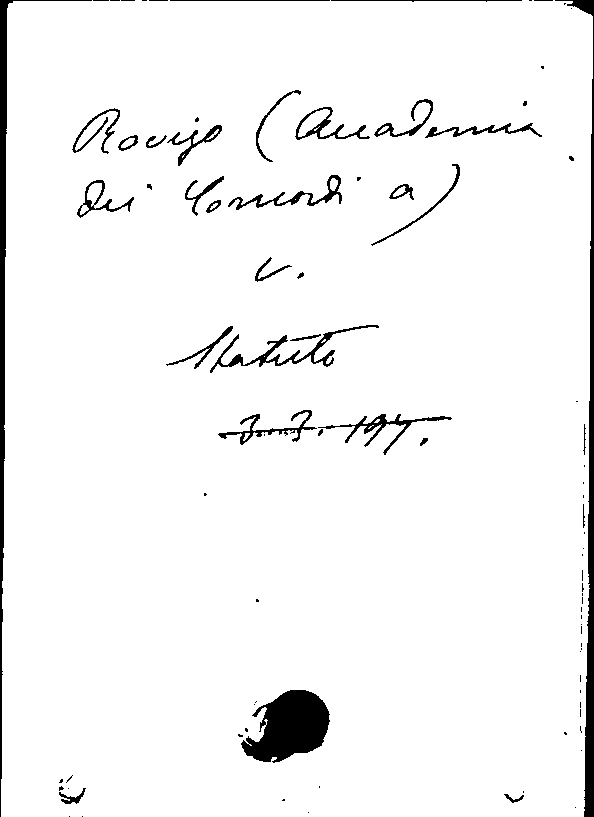 Rovigo (Accademia
dei Concordi a)
v.
Statuto
3.3.197.